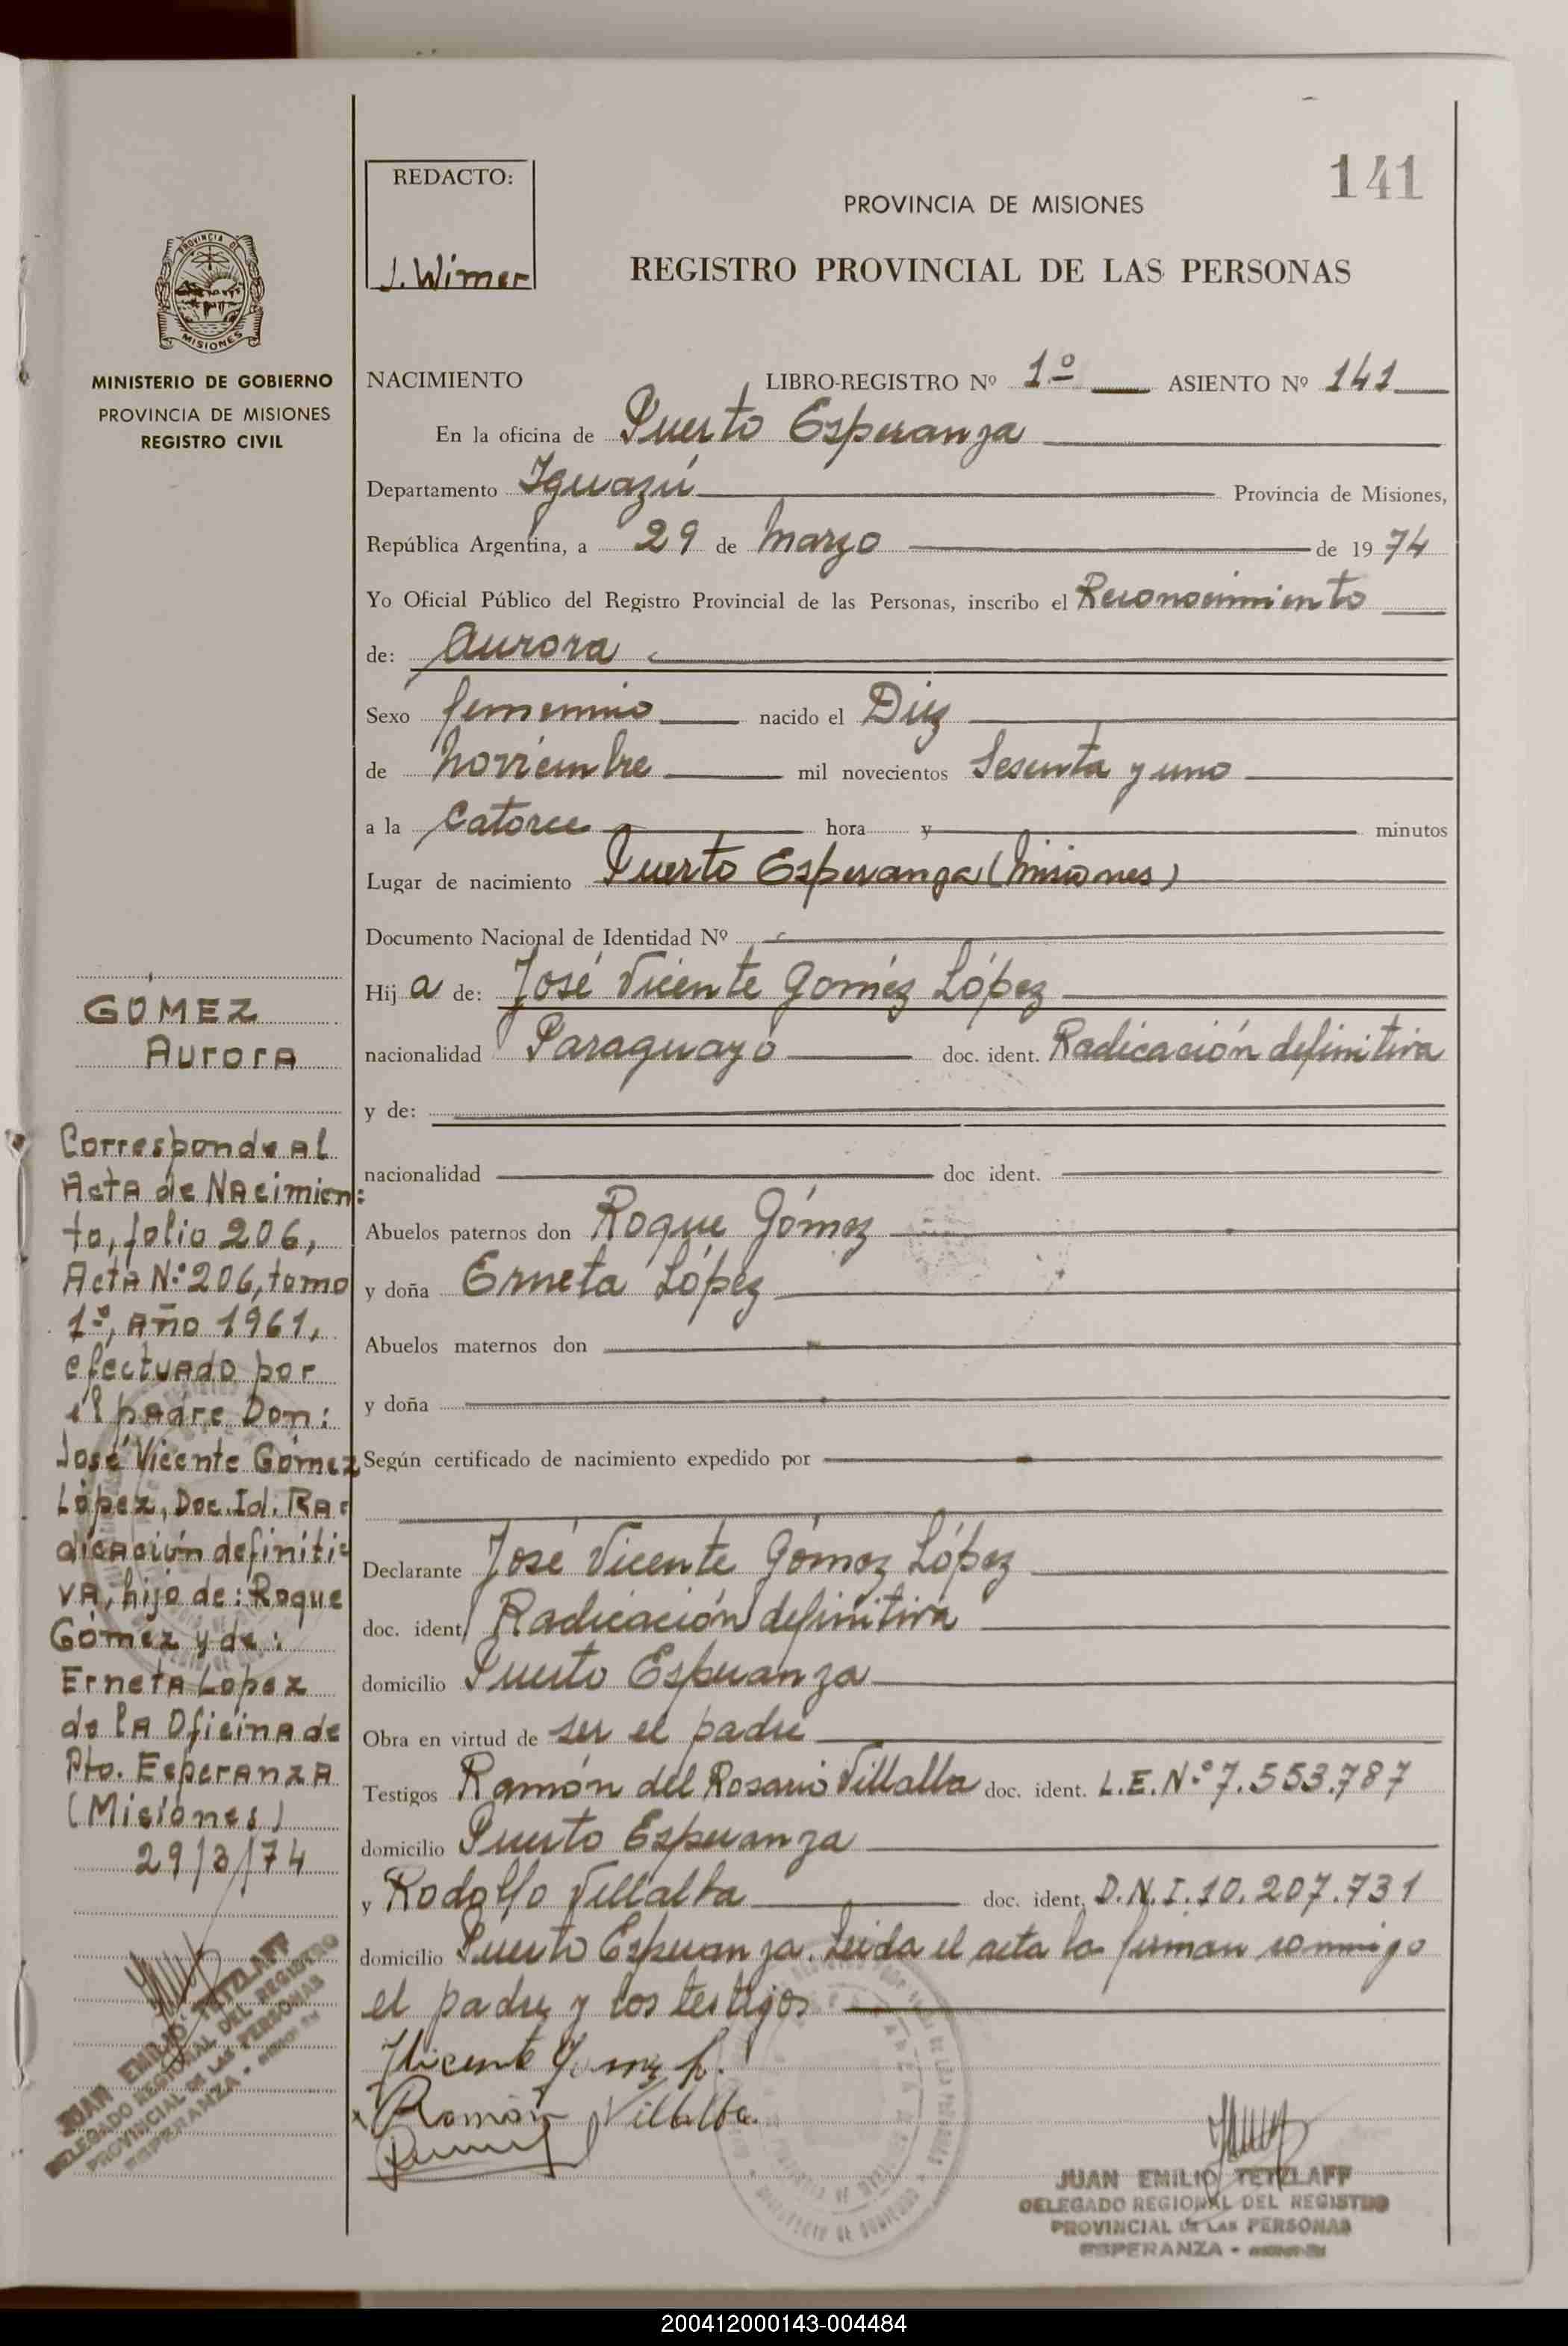 141
REDACTO:
J. Wimer
PROVINCIA DE MISIONES
REGISTRO PROVINCIAL DE LAS PERSONAS
PROVINCIA DE
MISIONES
MINISTERIO DE GOBIERNO
PROVINCIA DE MISIONES
REGISTRO CIVIL
NACIMIENTO LIBRO-REGISTRO Nº 1º ASIENTO Nº 141
En la oficina de Puerto Esperanza
Departamento Iguazú Provincia de Misiones,
República Argentina, a 29 de Marzo de 1974
Yo Oficial Público del Registro Provincial de las Personas, inscribo el Reconocimiento
de: Aurora
Sexo femenino nacido el Diez
de Noviembre mil novecientos Sesenta y uno
a la Catorce hora y minutos
Lugar de nacimiento Puerto Esperanza (Misiones)
Documento Nacional de Identidad Nº
Hij a de: José Vicente Goméz López
nacionalidad Paraguayo doc. ident. Radicación definitiva
y de:
nacionalidad doc ident.
Abuelos paternos don Roque Gómez
y doña Erneta López
Abuelos maternos don
y doña
Según certificado de nacimiento expedido por
Declarante José Vicente Gómez López
doc. ident. Radicación definitiva
domicilio Puerto Esperanza
Obra en virtud de ser el padre
Testigos Ramón del Rosario Villalba doc. ident. L.E.Nº 7.553.787
domicilio Puerto Esperanza
y Rodolfo Villalba doc. ident. D.N.I. 10.207.731
domicilio Puerto Esperanza. Leida el acta la firman conmigo
el padre y los testigos
JVicente Gomez L.
Ramón Villalba.
JUAN EMILIO TETZLAFF
DELEGADO REGIONAL DEL REGISTRO
PROVINCIAL DE LAS PERSONAS
ESPERANZA -
GOMEZ
Aurora
Corresponde al
Acta de Nacimien:
to, folio 206,
Acta Nº 206, tomo
1º, Año 1961,
efectuado por
el padre Don:
José Vicente Gómez
López, Doc. Id. Ra=
dicación definiti=
va, hijo de: Roque
Gómez y de:
Erneta Lopez
de la Oficina de
Pto. Esperanza
(Misiones)
29/3/74
JUAN EMILIO TETZLAFF
DELEGADO REGIONAL DEL REGISTRO
PROVINCIAL DE LAS PERSONAS
ESPERANZA -
200412000143-004484